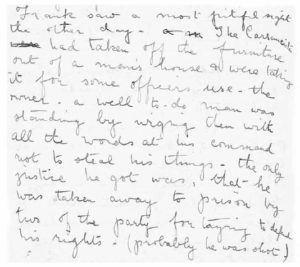 Frank saw a most pitiful sight
the other day. The
had taken off the furniture
out of a man's house & were taking
it for some officers use. the
owner. a well to. do man was
standing by urging them with
all the words at his command
not to steal his things. the only
justice he got was, that he
was taken away to prison by
two of the party for trying to
his rights. (probably he was shot)